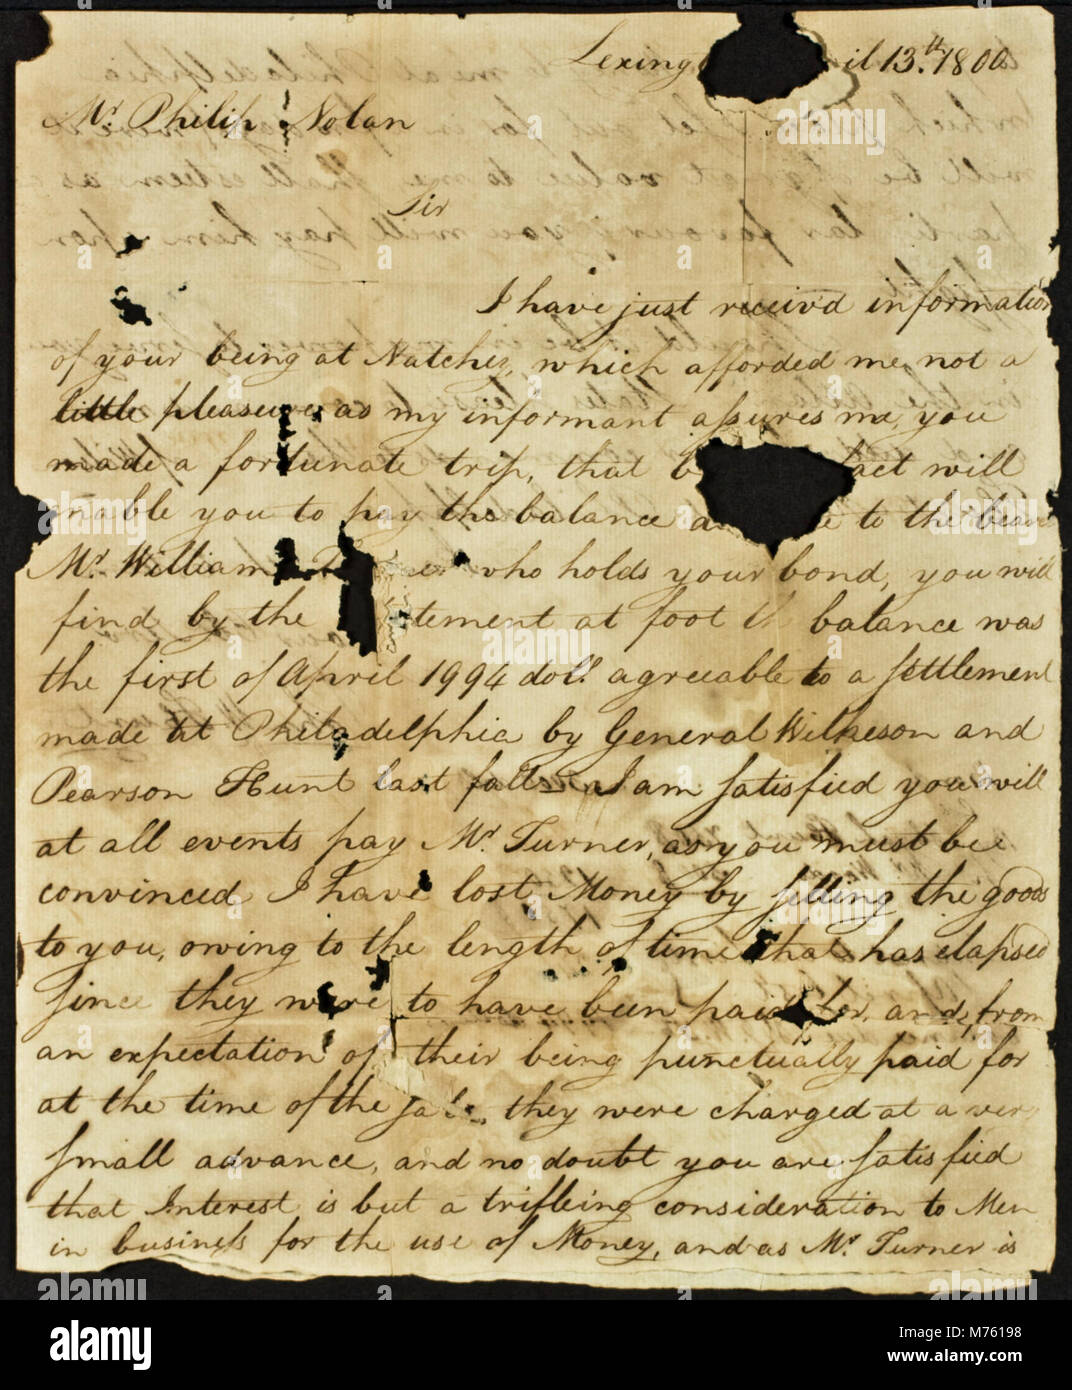 Lexing il 13.th 1800
Mr. Philip Nolan
Sir
I have just receiv'd information
of your being at Natchez, which afforded me not a
little pleasure, as my informant assures me, you
made a fortunate trip, that b act will
enable you to pay the balance a e to the bearer
Mr. William T er who holds your bond, you will
find by the tement at foot th balance was
the first of April 1994 doll. agreeable to a settlement
made at Philadelphia by General Wilkeson and
Pearson Hunt last fall - I am satisfied you will
at all events pay Mr. Turner, as you must be
convinced I have lost Money by selling the goods
to you, owing to the length of time that has elapsed
since they were to have been paid for, and, from
an expectation of their being punctually paid for
at the time of the sale, they were charged at a very
small advance, and no doubt you are satisfied
that Interest is but a trifleing consideration to Men
in business for the use of Money, and as Mr. Turner is
alamy
alamy stock photo
M76198
www.alamy.com